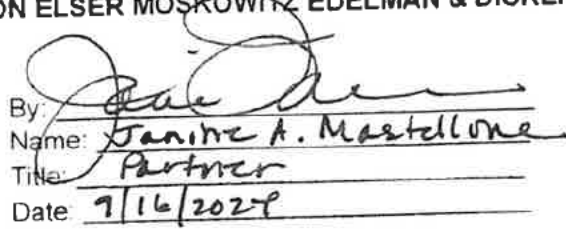 ON ELSER MOSKOWITZ EDELMAN & DICKE
By:
Name: Janine A. Mastellone
Title: Partner
Date: 9/16/2024